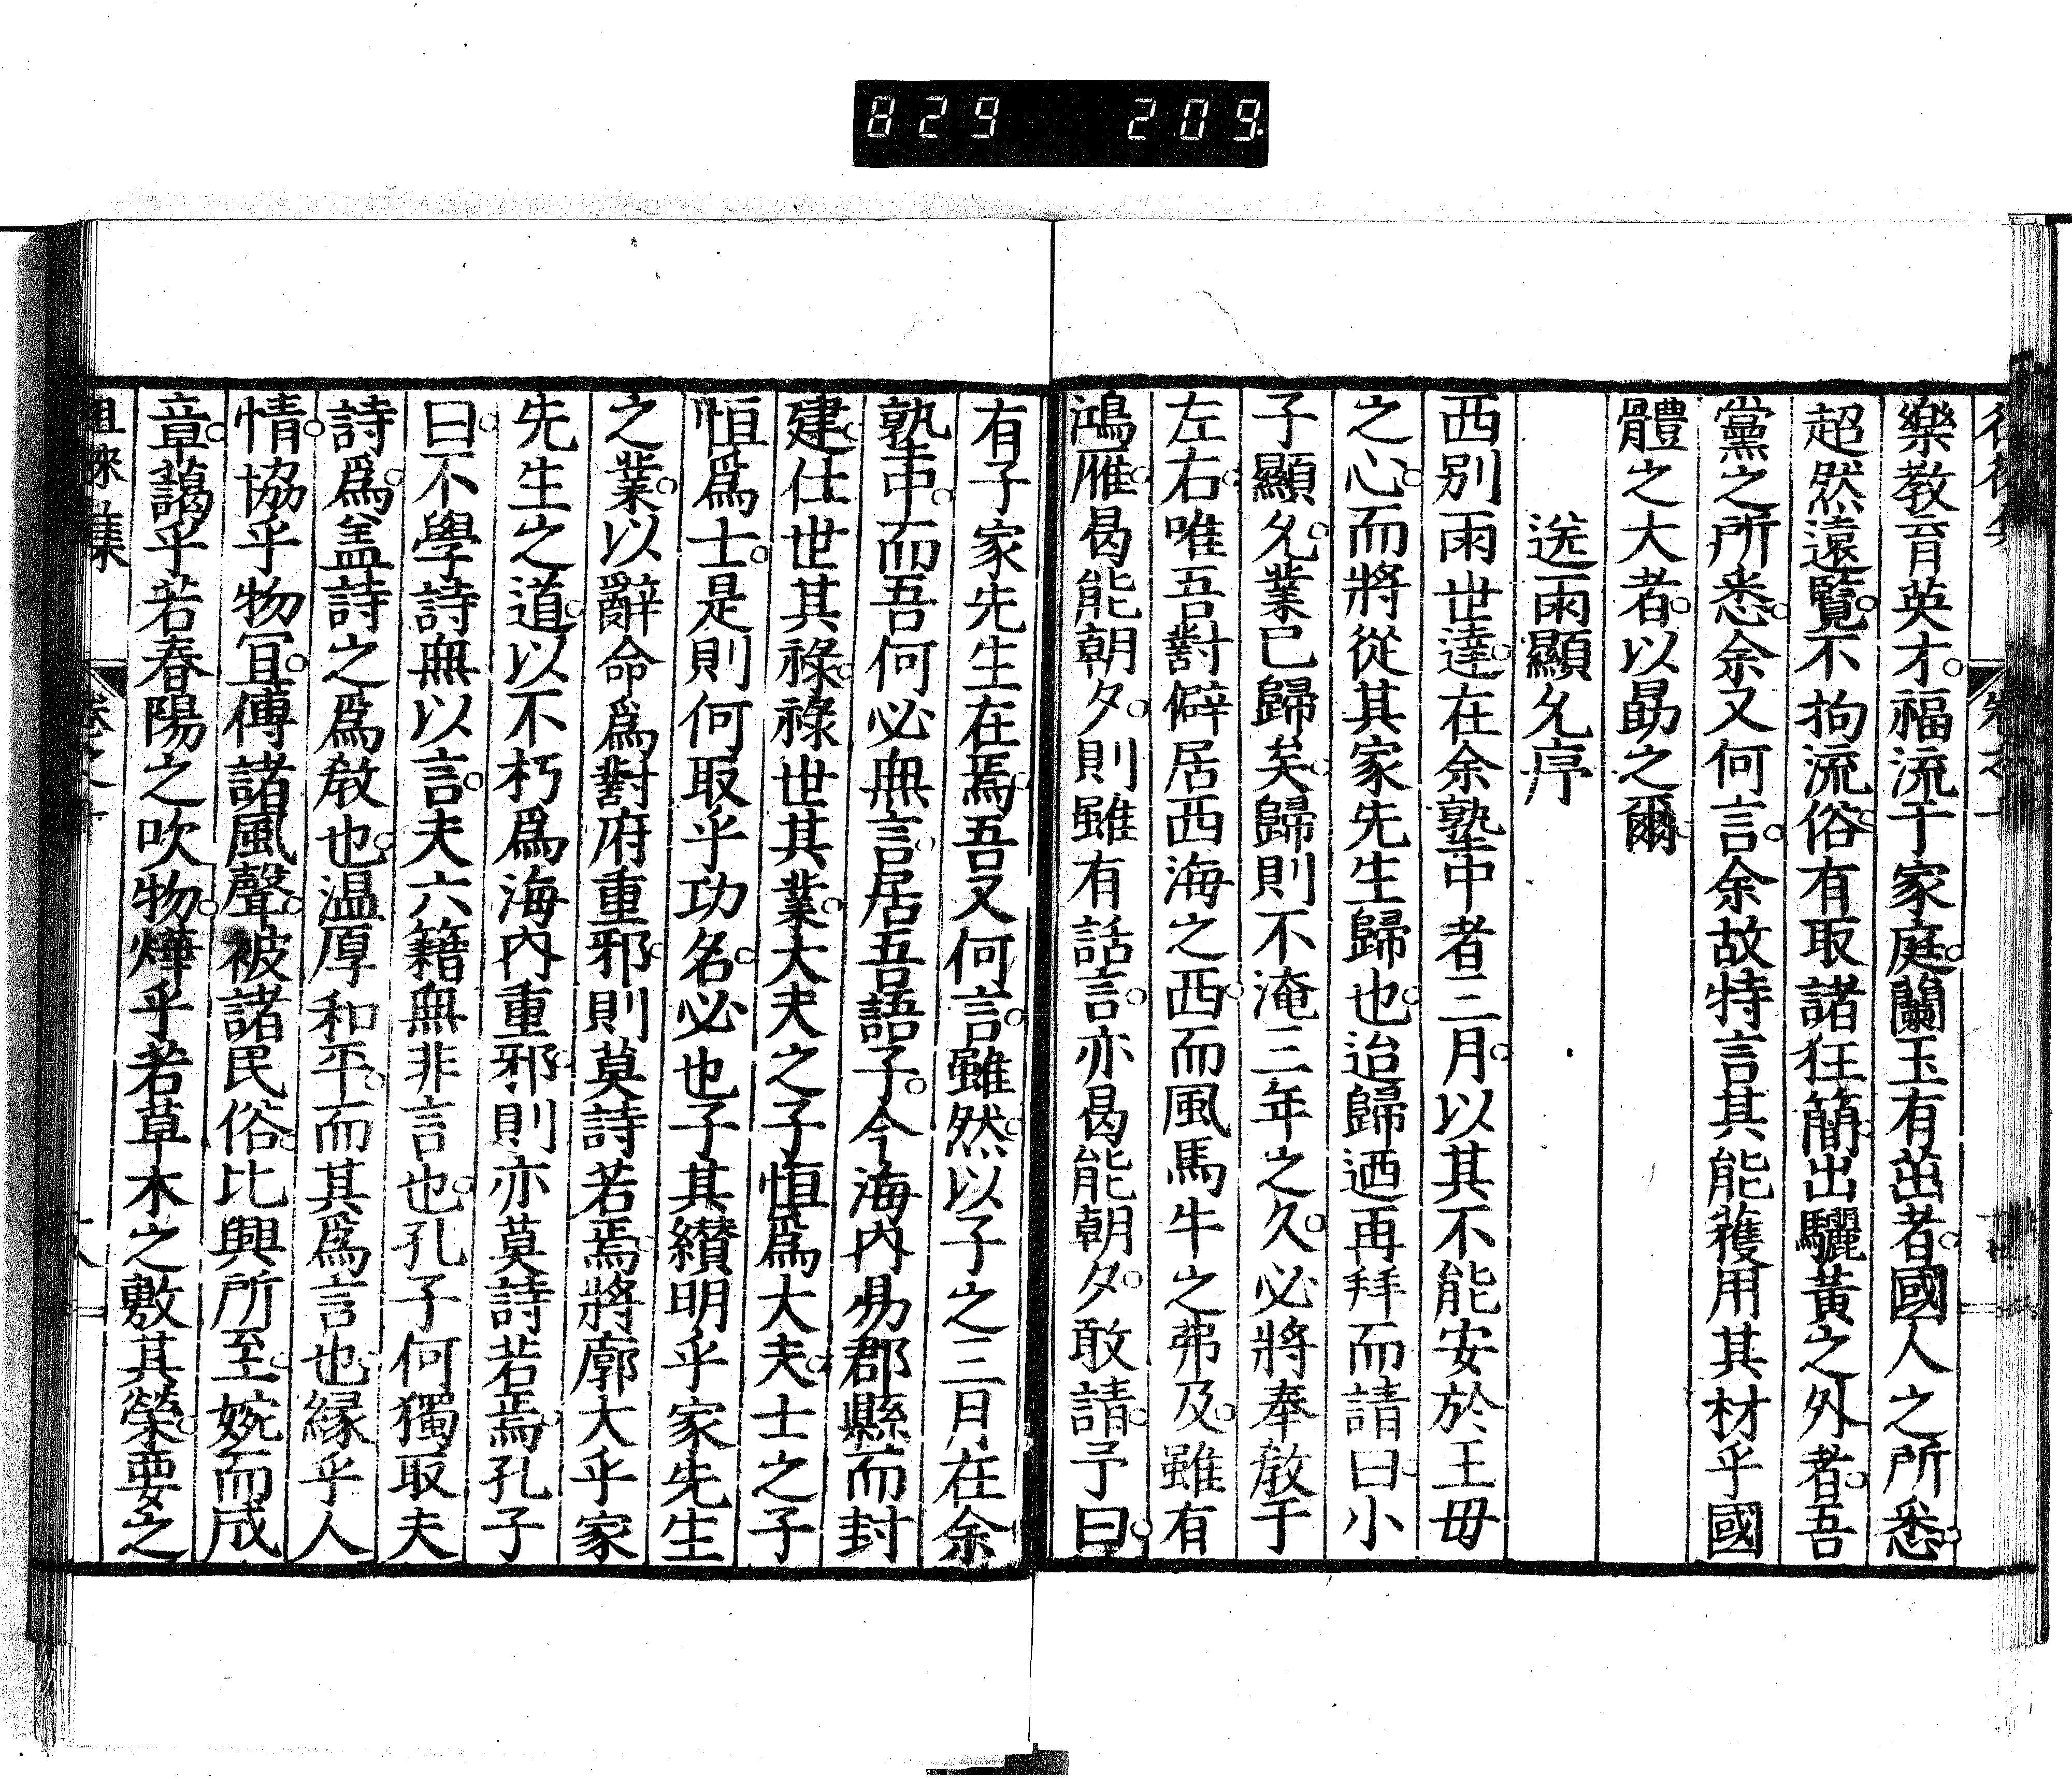 829 209
樂教育英才。福流于家庭。蘭玉有茁者。國人之所悉。
超然遠覽。不拘流俗。有取諸狂簡。出驪黃之外者。吾
黨之所悉。余又何言。余故特言其能獲用其材乎國
體之大者。以勗之爾
送雨顯允序
西別雨世達。在余塾中者三月。以其不能安於王毋
之心。而將從其家先生歸也。迨歸迺再拜而請曰。小
子顯允。業已歸矣。歸則不淹三年之久。必將奉教于
左右。唯吾對僻居西海之西。而風馬牛之弗及。雖有
鴻雁。曷能朝夕。則雖有話言。亦曷能朝夕。敢請。予曰。
有子家先生在焉。吾又何言。雖然。以子之三月在余
塾中。而吾何必無言。居。吾語子。今海內昜郡縣而封
建。仕世其祿。祿世其業。大夫之子恒爲大夫。士之子
恒爲士。是則何取乎功名。必也子其纘明乎家先生
之業。以辭命爲對府重邪。則莫詩若焉。將廓大乎家
先生之道。以不朽爲海內重邪。則亦莫詩若焉。孔子
曰。不學詩無以言。夫六籍無非言也。孔子何獨取夫
詩爲。盖詩之爲教也。溫厚和平。而其爲言也。緣乎人
情。協乎物宜。傳諸風聲。被諸民俗。比興所至。婉而成
章。藹乎若春陽之吹物。燁乎若草木之敷其榮。要之
徂徠集
卷之十